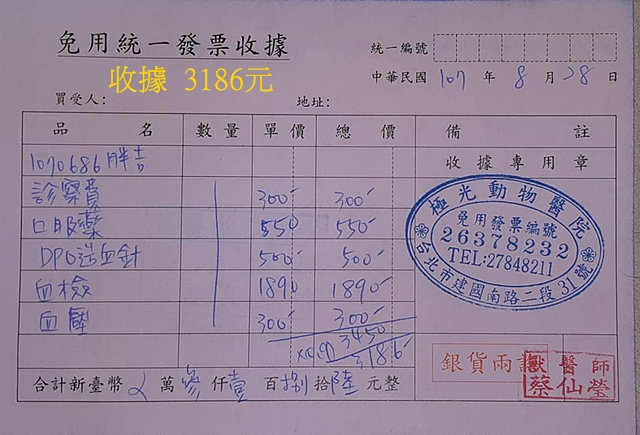 免用統一發票收據
統一編號
收據 3186元
中華民國 107 年 8 月 28 日
買受人: 地址:
品名 數量 單價 總價 備註
1070686 胖吉 收據專用章
診察費 300 300
口服藥 550 550
DPO造血針 500 500
血檢 1890 1890
血壓 300 300
3450
3186
極光動物醫院
免用發票編號
26378232
TEL:27848211
台北市建國南路二段31號
銀貨兩訖
獸醫師
蔡仙瑩
合計新臺幣 萬 參 仟 壹 百 捌 拾 陸 元整